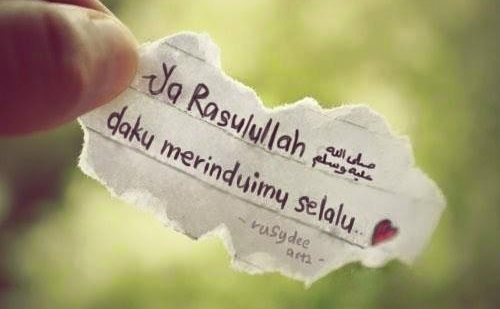 Ya Rasulullah صلى الله عليه وسلم
daku merinduimu selalu..
- rusydee
artz -